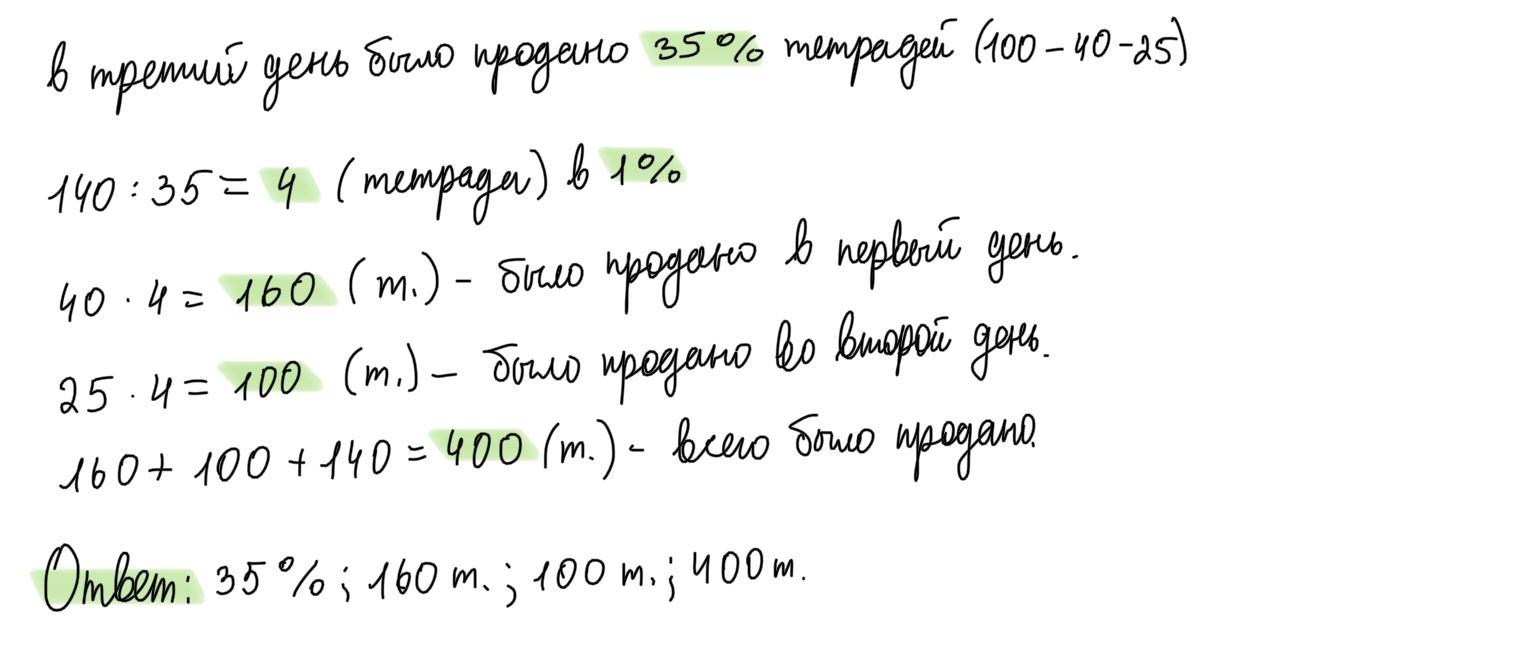 в третий день было продано 35% тетрадей (100 - 40 - 25)
140 : 35 = 4 (тетради) в 1%
40 · 4 = 160 (т.) - было продано в первый день.
25 · 4 = 100 (т.) - было продано во второй день.
160 + 100 + 140 = 400 (т.) - всего было продано.
Ответ: 35%; 160 т.; 100 т.; 400 т.